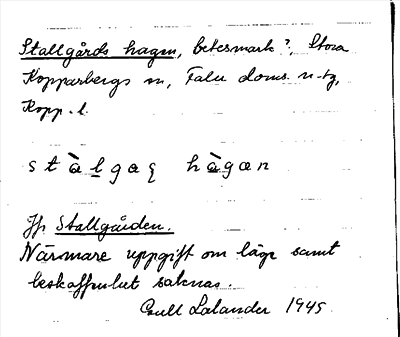 Stallgårds hagen, betesmark?, Stora
Kopparbergs sn, Falu doms. n-tg,
Kopp. l.
stàlgaʂ hàgæn
Jfr Stallgården.
Närmare uppgift om läge samt
beskaffenhet saknas.
Gull Lalander 1945